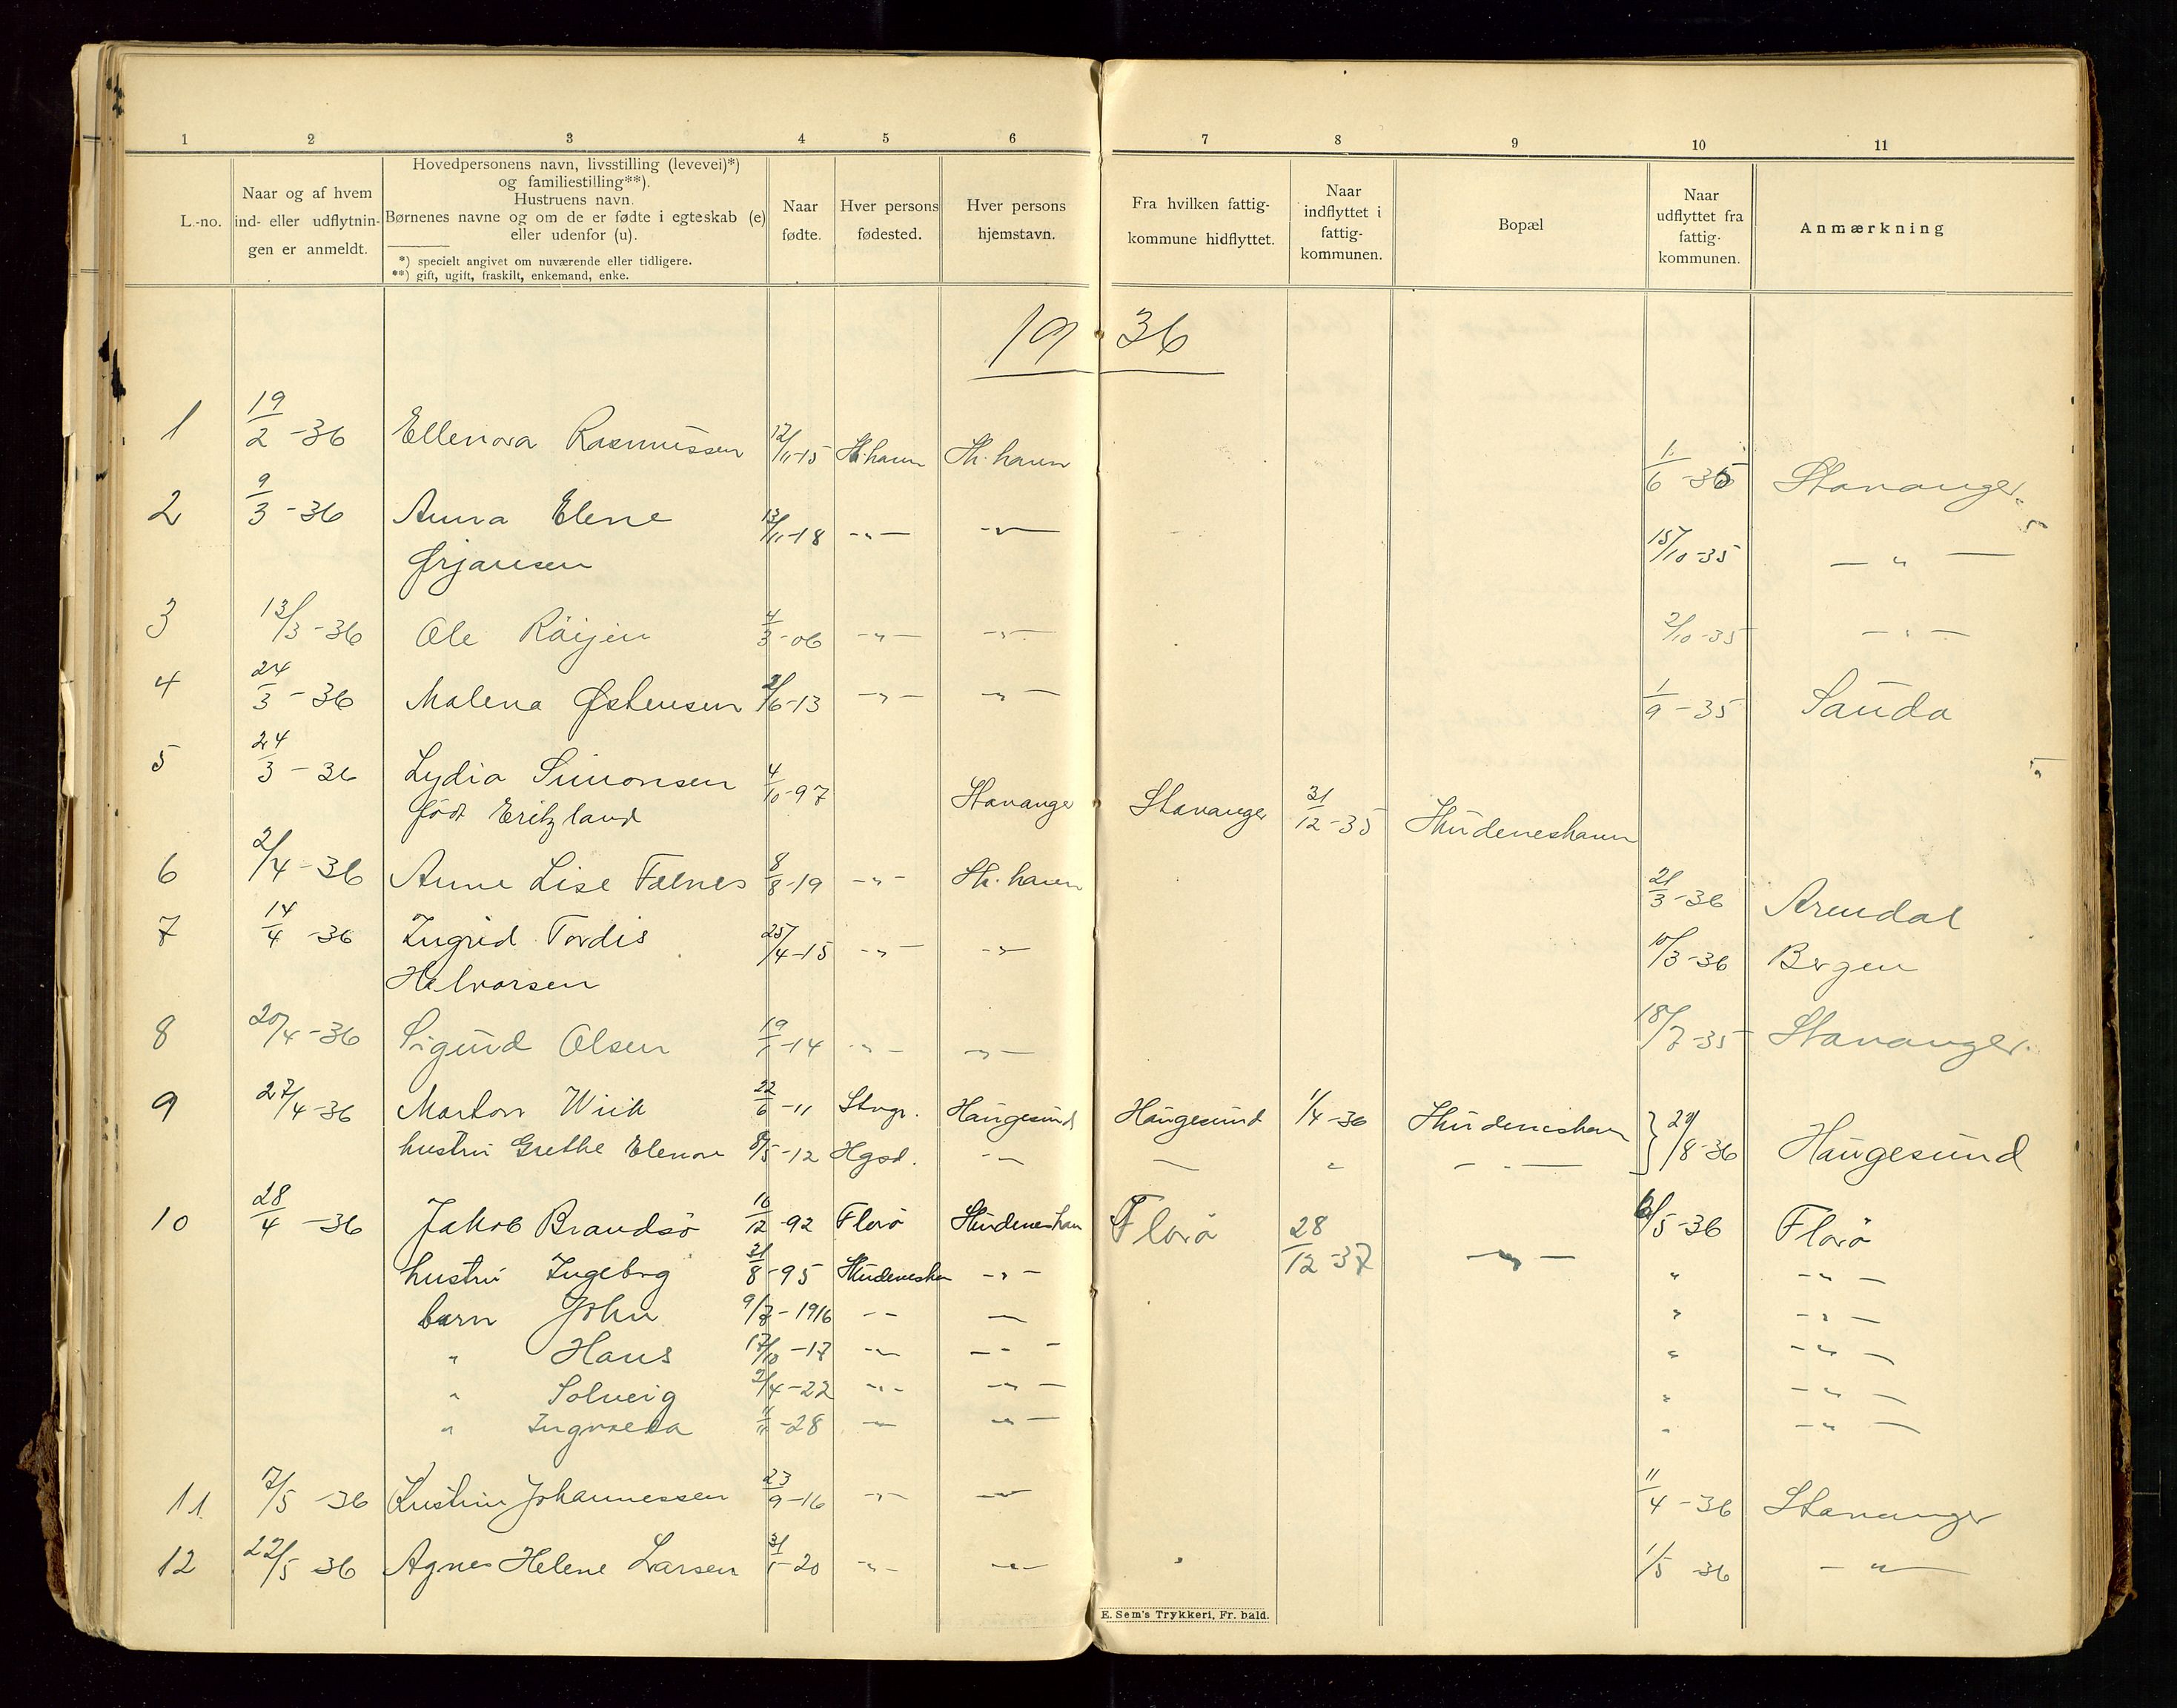 1 2 3 4 5 6 7 8 9 10 11
L.-no.
Naar og af hvem
ind- eller udflytnin-
gen er anmeldt.
Hovedpersonens navn, livsstilling (levevei)*)
og familiestilling**).
Hustruens navn.
Børnenes navne og om de er fødte i egteskab (e)
eller udenfor (u).
*) specielt angivet om nuværende eller tidligere.
**) gift, ugift, fraskilt, enkemand, enke.
Naar
fødte.
Hver persons
fødested.
Hver persons
hjemstavn.
Fra hvilken fattig-
kommune hidflyttet.
Naar
indflyttet i
fattig-
kommunen.
Bopæl
Naar
udflyttet fra
fattig-
kommunen.
Anmærkning
1936
1 19/2 -36 Ellenora Rasmussen 12/11-15 Sk.havn Sk. havn 1/6 -35 Stavanger
2 9/3 -36 Anna Elene 13/11-18 -"- -"- 15/10-35 - " -
Ørjansen
3 13/3 -36 Ole 4/3 -06 -"- -"- 2/10-35 - " -
4 24/3 -36 Malena Østensen 2/6-13 -"- -"- 1/9 -35 Sauda
5 24/3 -36 Lydia Simonsen 4/10-97 Stavanger Stavanger 31/12-35 Skudeneshavn
født Eritzland
6 2/4-36 Anne Lise Falnes 8/8-19 -"- Sk. havn 21/3 -36 Arendal
7 14/4 -36 Ingrid Tordis 25/4-15 -"- -"- 10/3-36 Bergen
Helvorsen
8 20/4-36 Sigurd Olsen 19/1-14 -"- -"- 18/7-35 Stavanger.
9 27/4-36 Marton Wiik 22/6 -11 Stvgr. Haugesund Haugesund 1/4-36 Skudeneshavn } 29/8-36 Haugesund
hustru Grethe Elenore 8/5-12 Hgsd. -"- - " - " -
10 28/4 -36 Jakob Brandsø 16/12 -92 Florø Skudeneshavn Florø 28/12-37 -"- 6/5-36 Florø
hustru Ingeborg 31/8 -95 Skudeneshavn -"- " -"-
barn John 9/7-1916 -- - " -"-
" Hans 17/10 -17 -"- -"- " -"-
" Solveig 2/4-22 -"- -"- " -"-
" 11/11 -28 -"- -"- " -"-
11. 7/5 -36 Kristine Johannessen 23/9-16 -"- -"- 11/4 -36 Stavanger
12 22/5 -36 Agnes Helene Larsen 31/1-20 -"- -"- 1/5 -36 -"-
E. Sem's Trykkeri, Fr. hald.